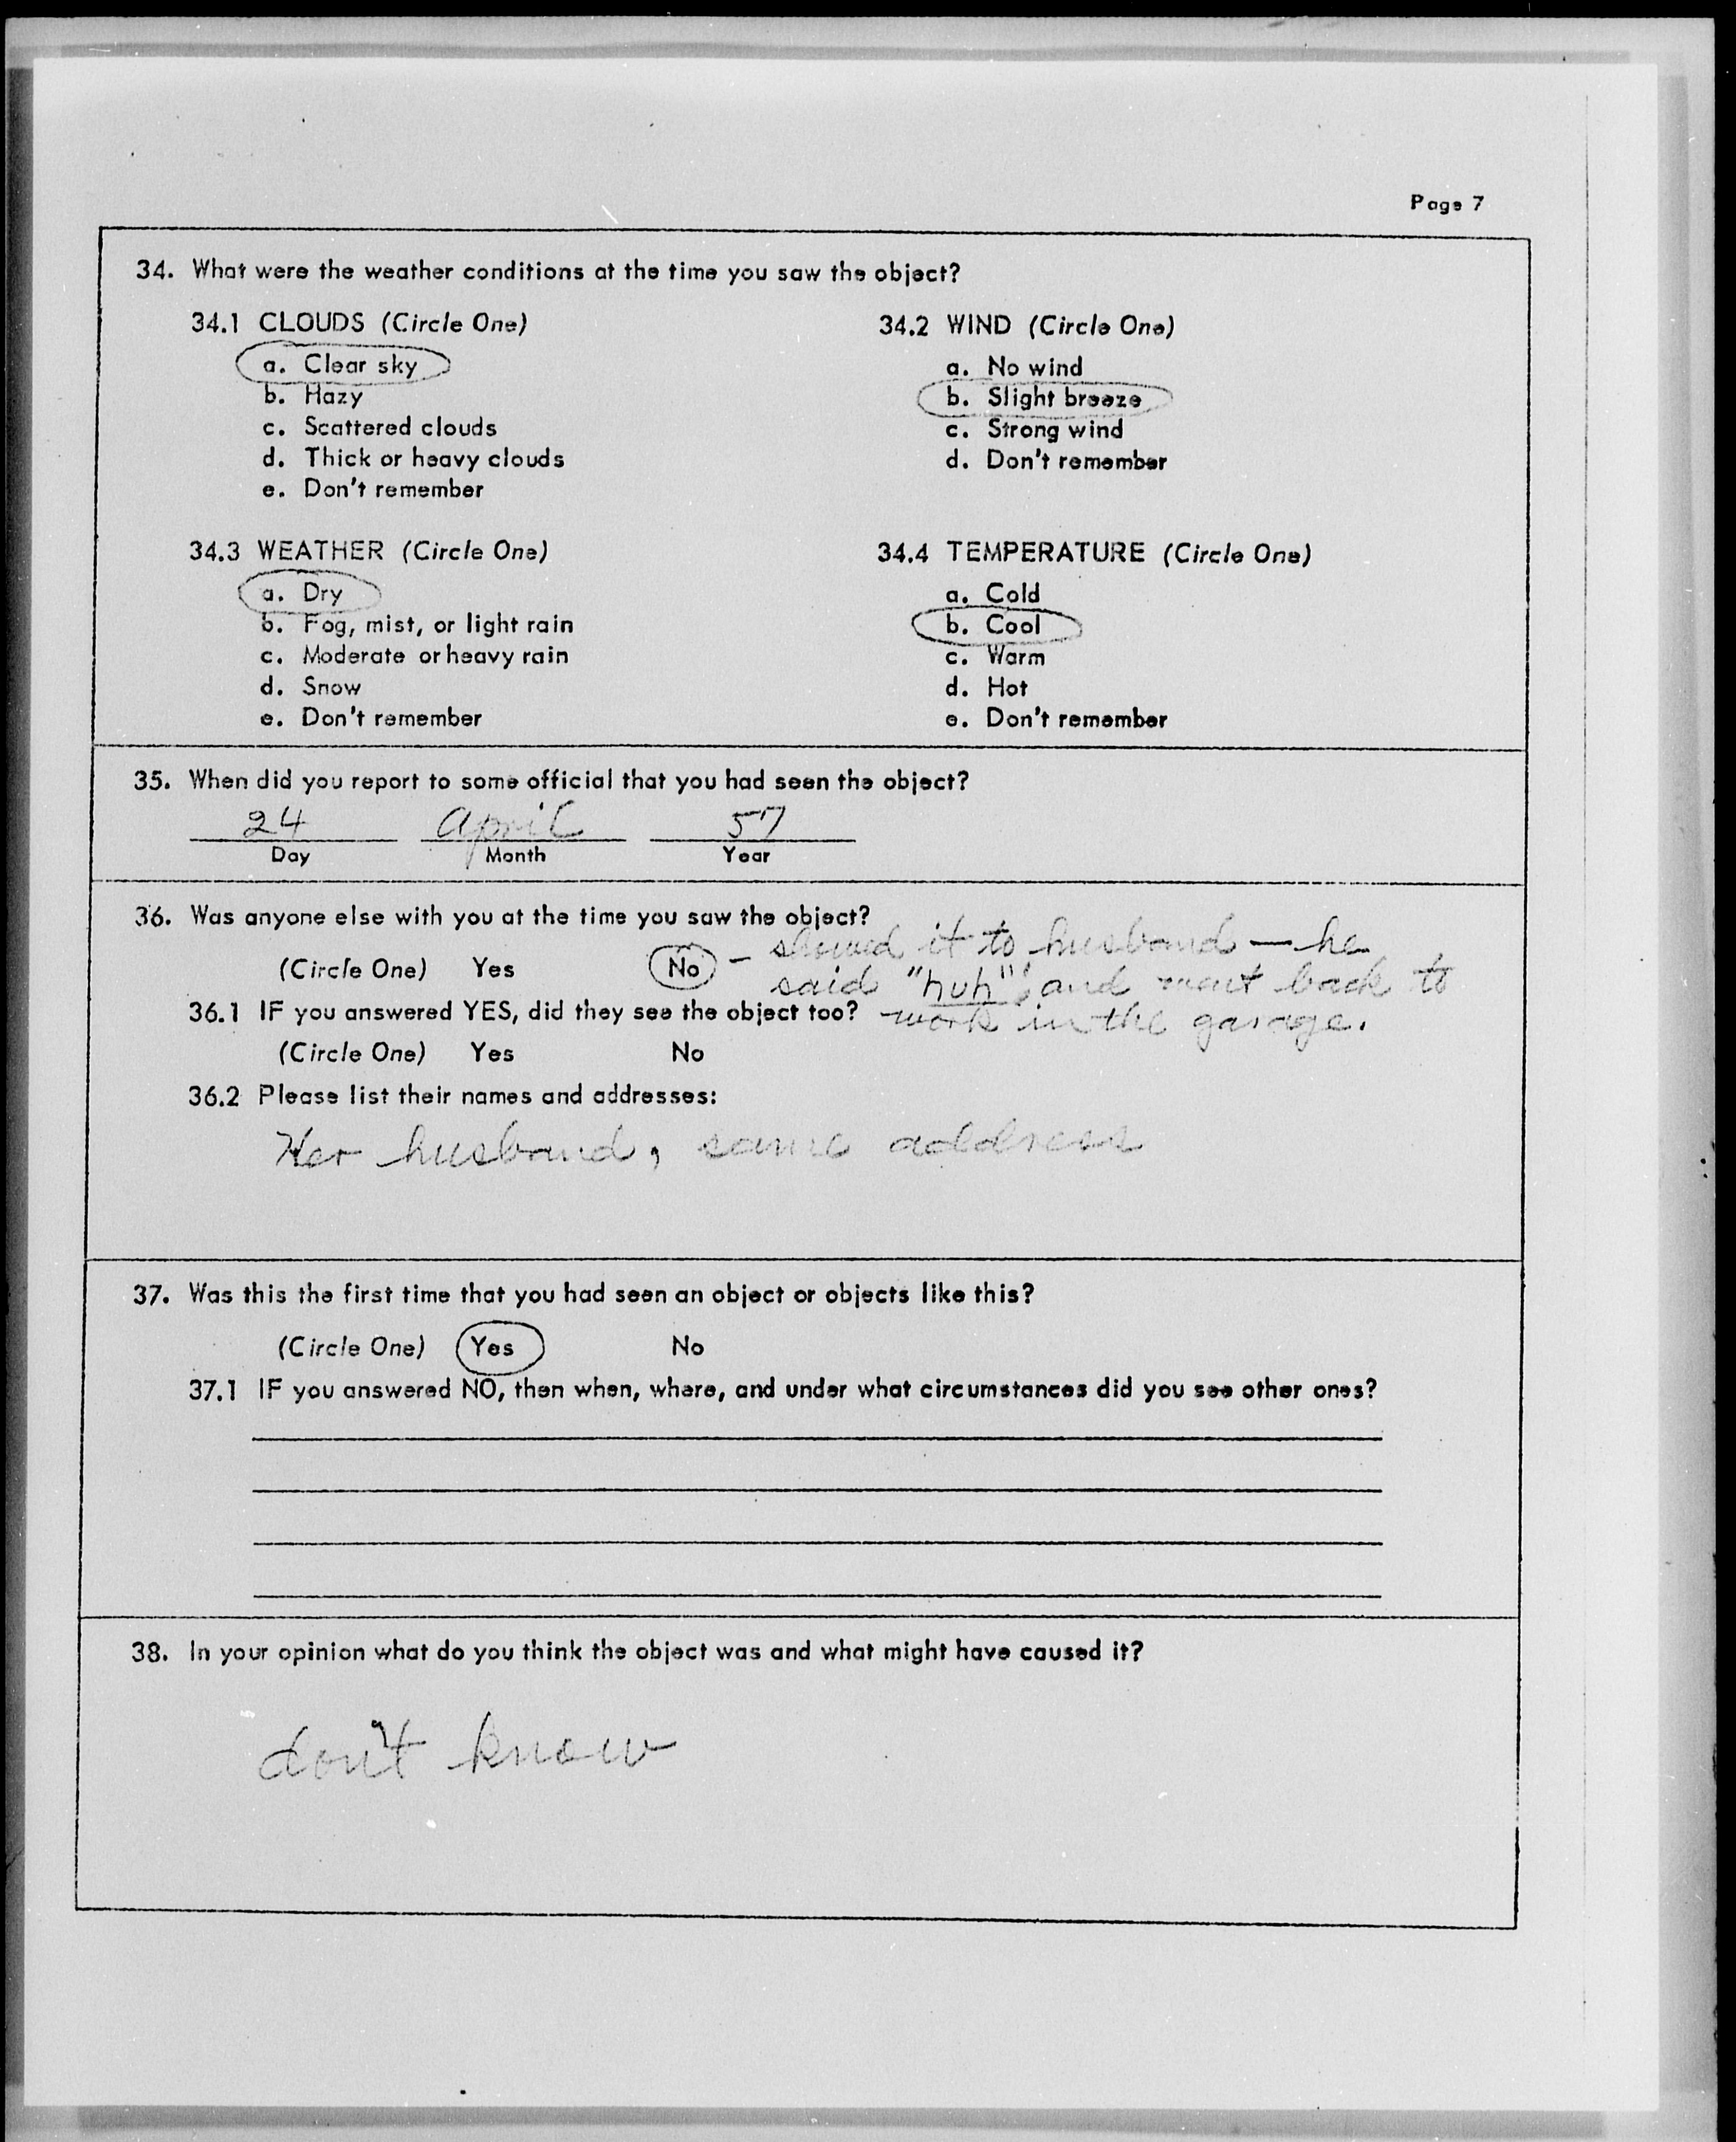 Page 7
34. What were the weather conditions at the time you saw the object?
34.1 CLOUDS (Circle One)
a. Clear sky
b. Hazy
c. Scattered clouds
d. Thick or heavy clouds
e. Don't remember
34.2 WIND (Circle One)
a. No wind
b. Slight breeze
c. Strong wind
d. Don't remember
34.3 WEATHER (Circle One)
a. Dry
b. Fog, mist, or light rain
c. Moderate or heavy rain
d. Snow
e. Don't remember
34.4 TEMPERATURE (Circle One)
a. Cold
b. Cool
c. Warm
d. Hot
e. Don't remember
35. When did you report to some official that you had seen the object?
24 April 57
Day Month Year
36. Was anyone else with you at the time you saw the object?
(Circle One) Yes No – showed it to husband — he
said "huh", and went back to
work in the garage.
36.1 IF you answered YES, did they see the object too?
(Circle One) Yes No
36.2 Please list their names and addresses:
Her husband, same address
37. Was this the first time that you had seen an object or objects like this?
(Circle One) Yes No
37.1 IF you answered NO, then when, where, and under what circumstances did you see other ones?
38. In your opinion what do you think the object was and what might have caused it?
don't know